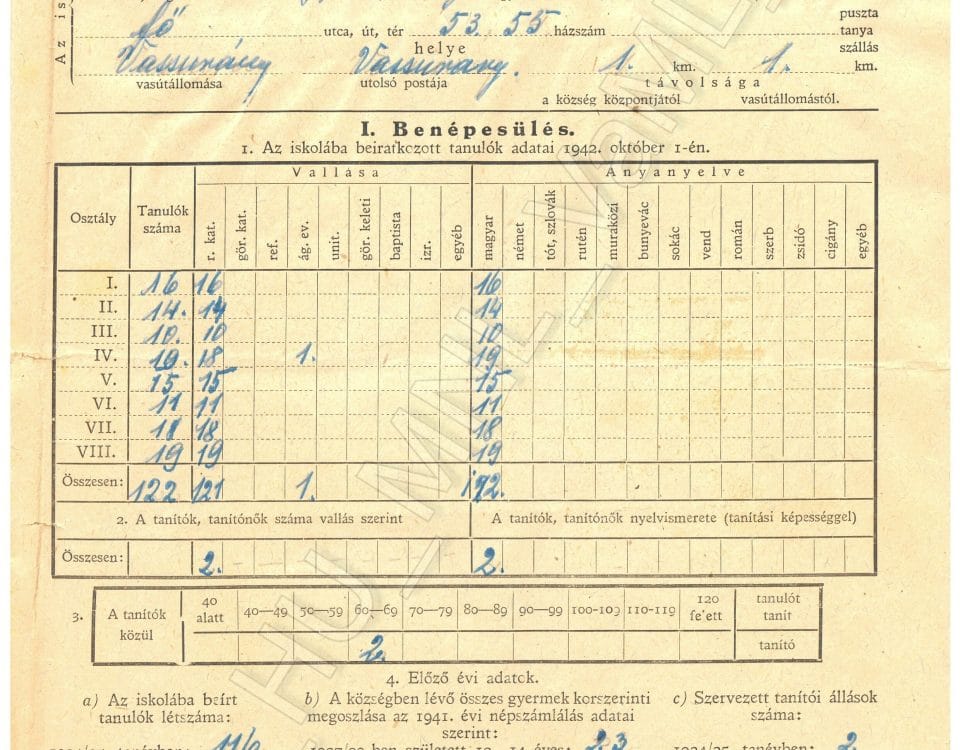 Az is
fő utca, út, tér 53. 55 házszám
puszta
tanya
szállás
helye
Vassurány Vassurány. 1. km. 1. km.
vasútállomása utolsó postája távolsága
a község központjától vasútállomástól.
I. Benépesülés.
1. Az iskolába beiratkozott tanulók adatai 1942. október 1-én.
Osztály Tanulók száma Vallása Anyanyelve
r. kat. gör. kat. ref. ág. ev. unit. gör. keleti baptista izr. egyéb magyar német tót, szlovák rutén muraközi bunyevác sokác vend román szerb zsidó cigány egyéb
I. 16 16 16
II. 14. 14 14
III. 10. 10 10
IV. 19. 18 1. 19
V. 15 15 15
VI. 11 11 11
VII. 18 18 18
VIII. 19 19 19
Összesen: 122 121 1. 122.
2. A tanítók, tanítónők száma vallás szerint A tanítók, tanítónők nyelvismerete (tanítási képességgel)
Összesen: 2. 2.
3. A tanítók közül 40 alatt 40—49 50—59 60—69 70—79 80—89 90—99 100-109 110-119 120 felett tanulót tanít
2. tanító
4. Előző évi adatok.
a) Az iskolába beírt b) A községben lévő összes gyermek korszerinti c) Szervezett tanítói állások
tanulók létszáma: megoszlása az 1941. évi népszámlálás adatai száma:
szerint:
tanévben: 116 ben született 10—14 éves: 23 1934/35. tanévben: 2
HU_MNL_VaML